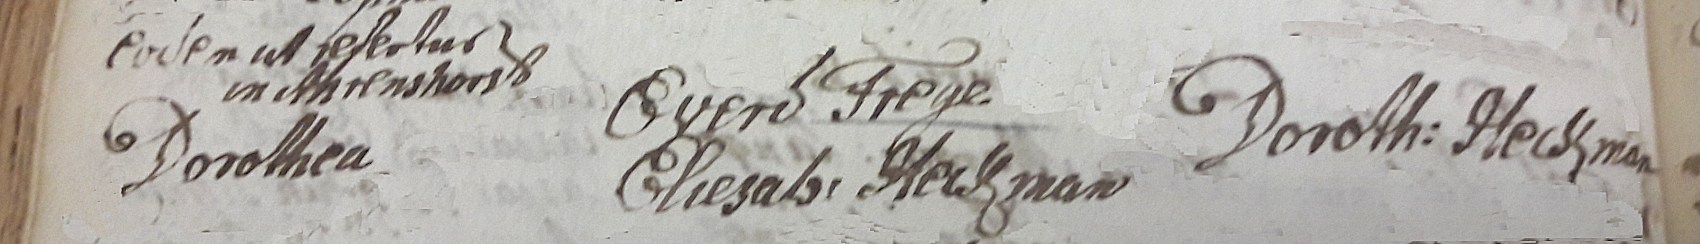 eodem ut refertur
in Ahrenshorst
Dorothea
Everd Freye
Eliesab: Heckman
Doroth: Heckman